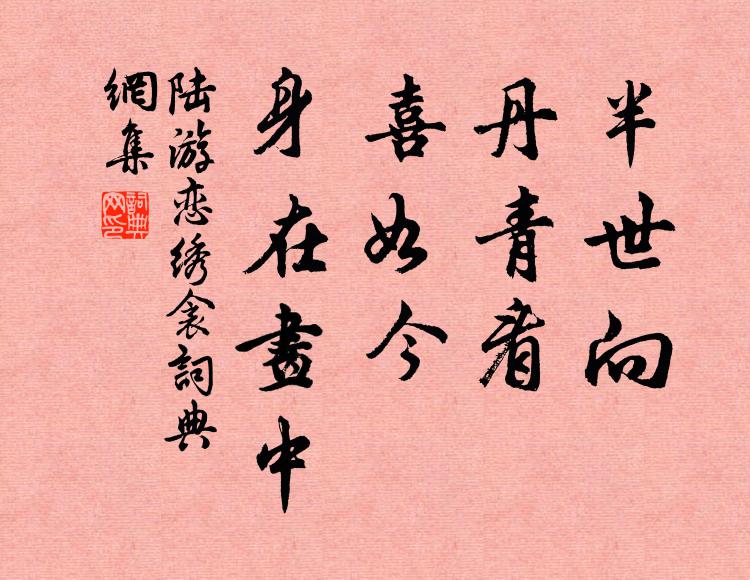 半世向
丹青看
喜如今
身在畫中
陆游恋绣衾詞典
網集
詞典
网印